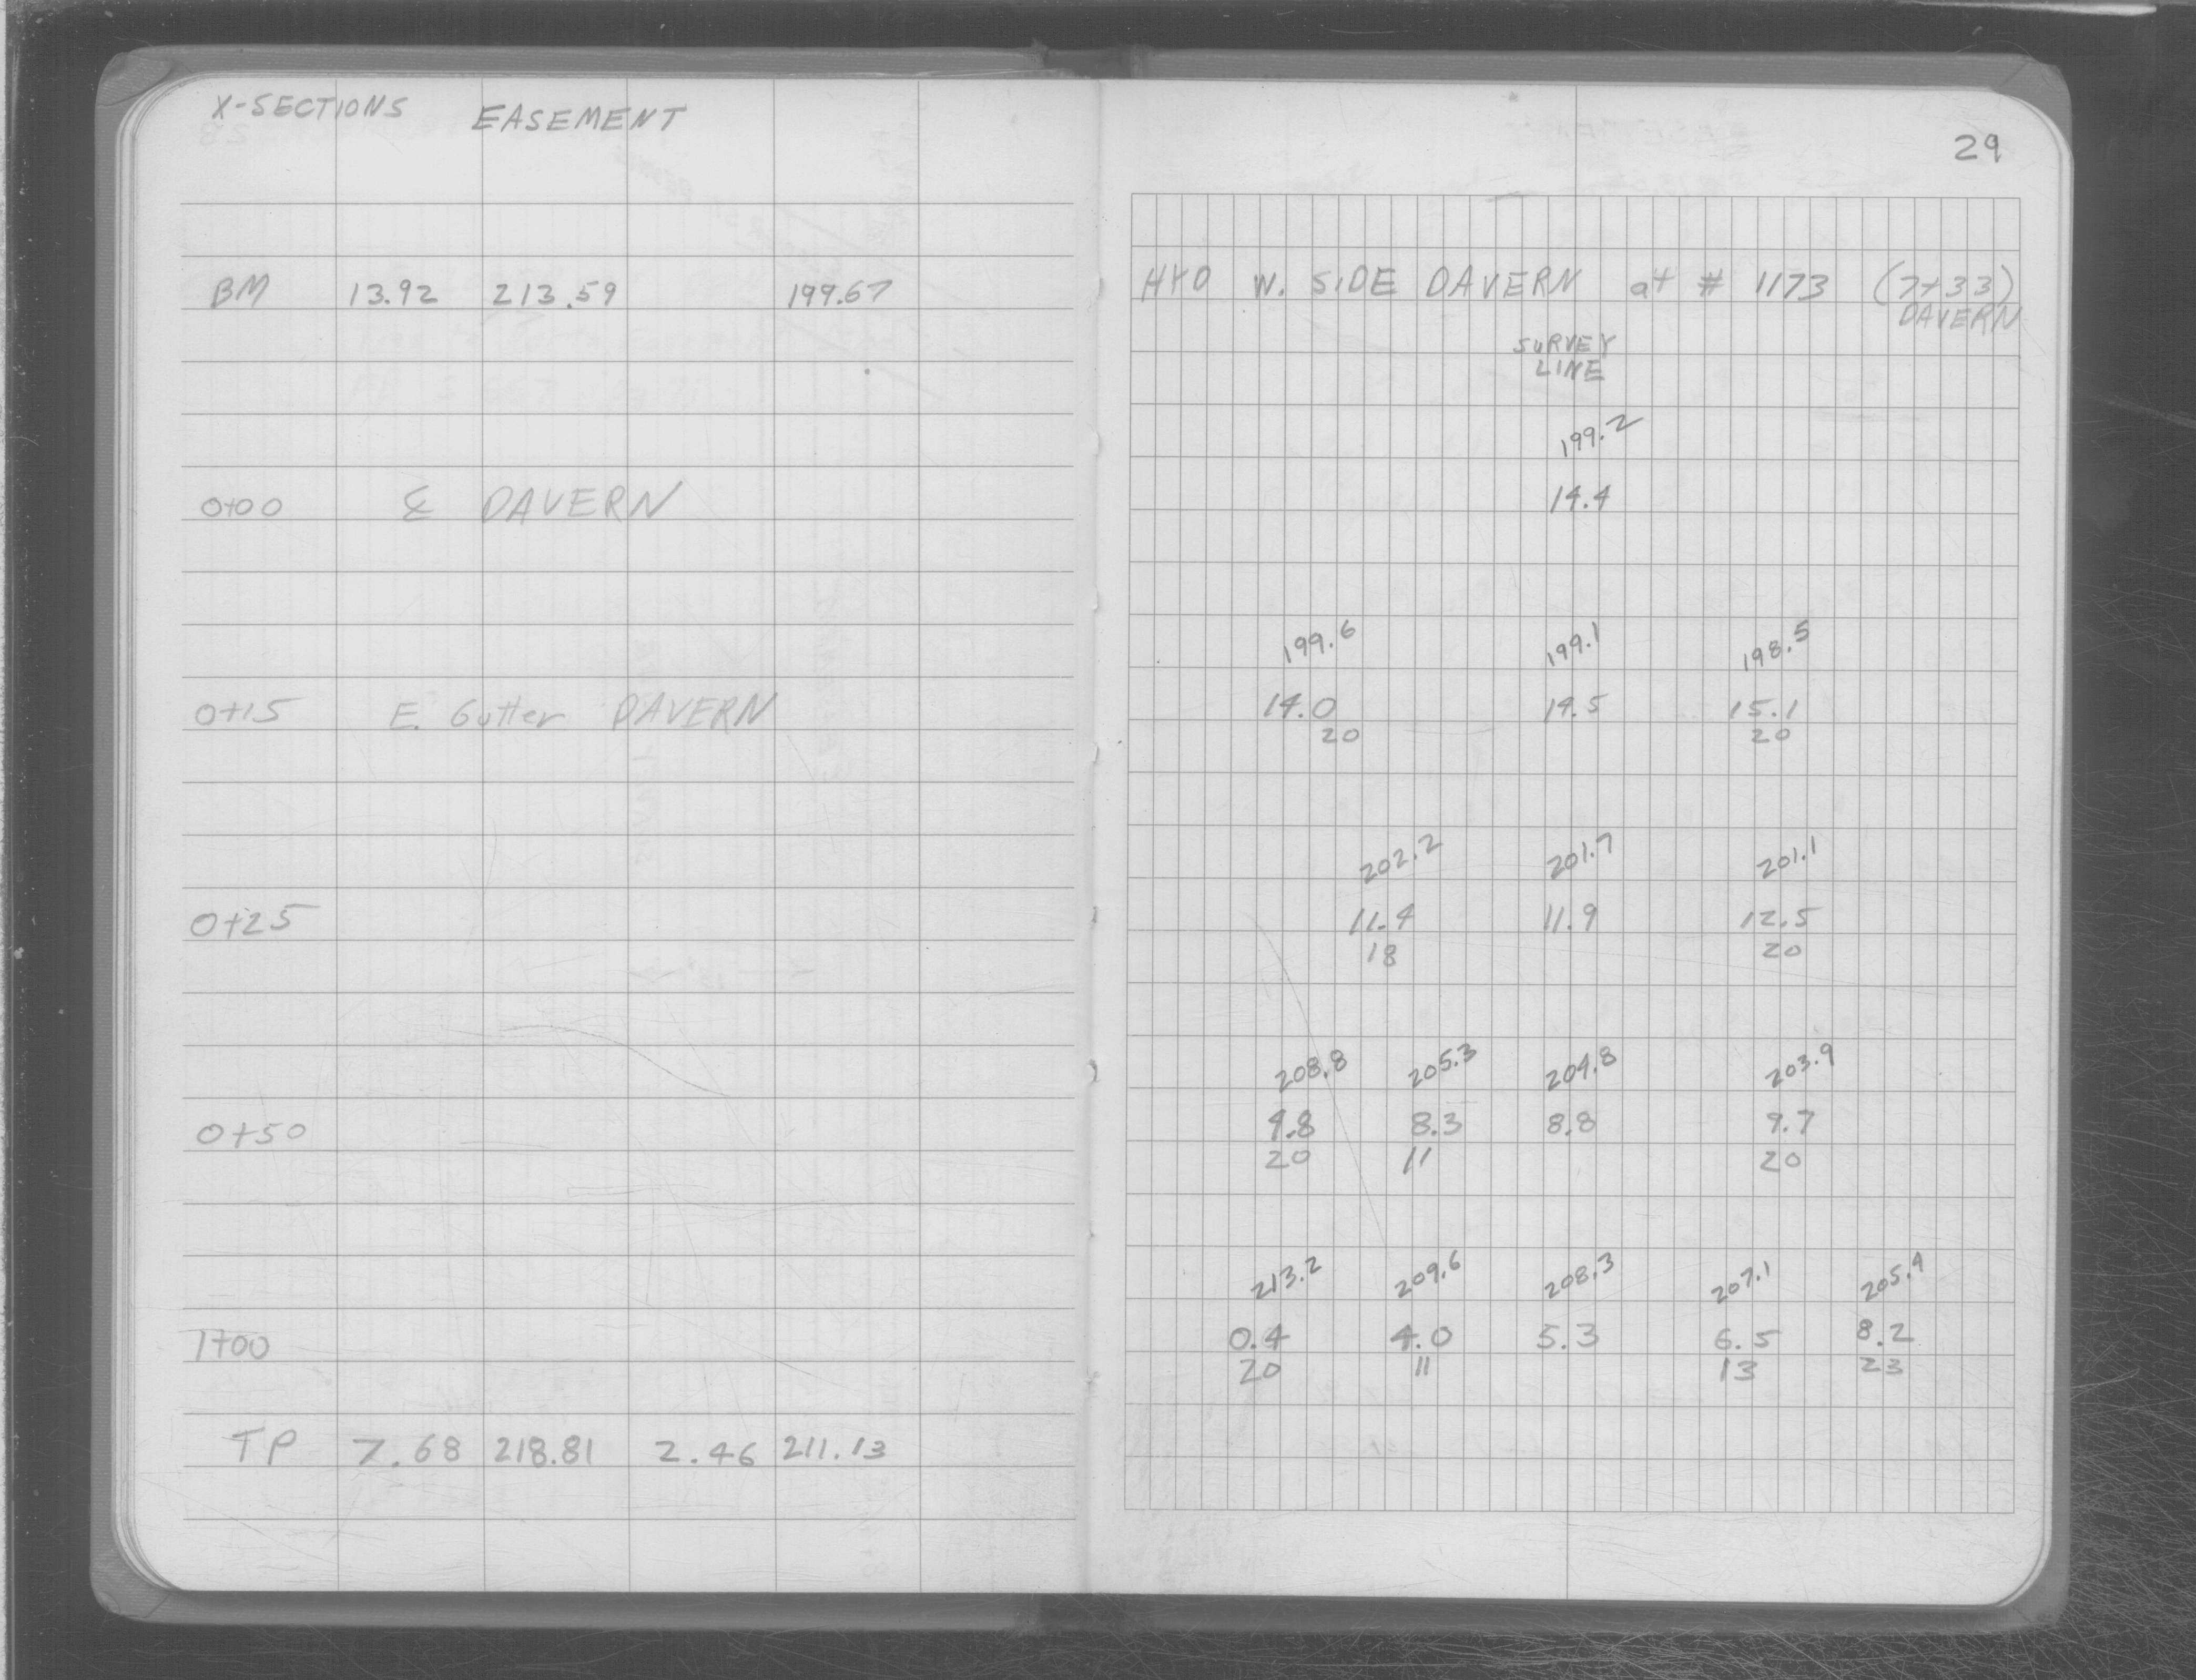 X-SECTIONS EASEMENT
29
BM 13.92 213.59 199.67 HYD W. SIDE DAVERN at # 1173 (7+33)
DAVERN
SURVEY
LINE
199.2
0+00 ℄ DAVERN 14.4
199.6 199.1 198.5
0+15 E. Gutter DAVERN 14.0 14.5 15.1
20 20
202.2 201.7 201.1
0+25 11.4 11.9 12.5
18 20
208.8 205.3 204.8 203.9
0+50 4.8 8.3 8.8 9.7
20 11 20
213.2 209.6 208.3 207.1 205.4
1+00 0.4 4.0 5.3 6.5 8.2
20 11 13 23
TP 7.68 218.81 2.46 211.13